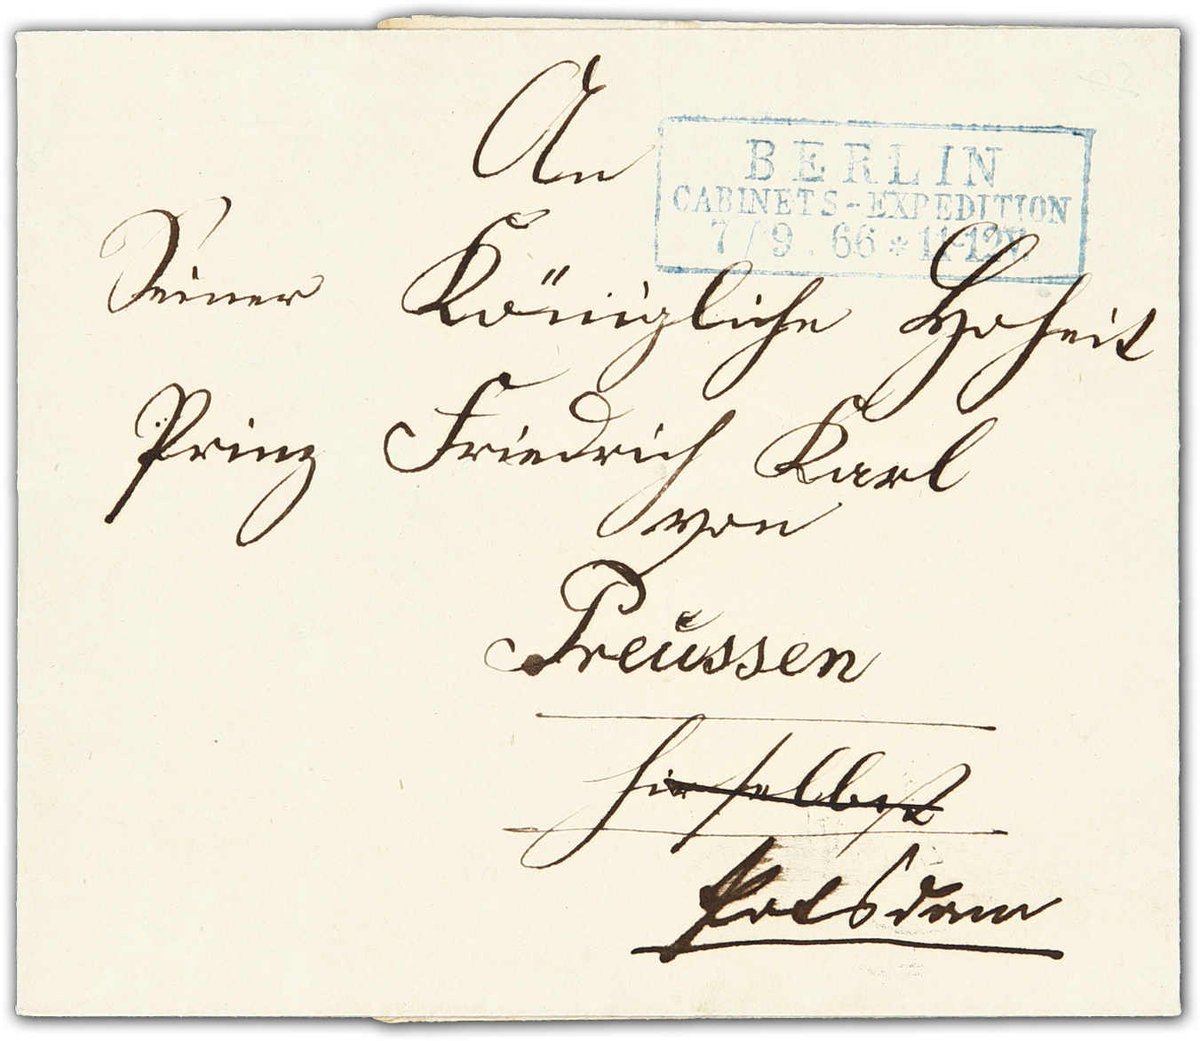 An
BERLIN
CABINETS-EXPEDITION
7/9.66*11-12V.
Seiner Königliche Hoheit
Prinz Friedrich Karl
von
Preussen
hieselbst
Potsdam